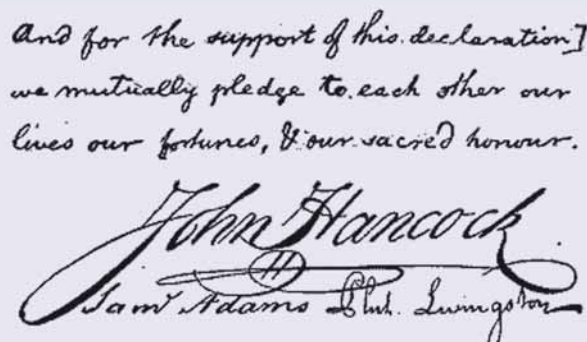 And for the support of this declaration]
we mutually pledge to each other our
lives our fortunes, & our sacred honour.
John Hancock
H
Sam¹ Adams Phil. Livingston